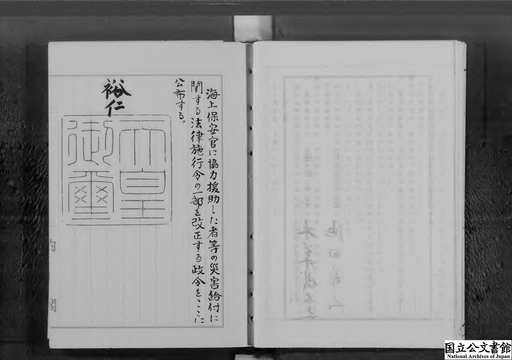 海上保安官に協力援助した者等の災害給付に
関する法律施行令の一部を改正する政令をここに
公布する。
裕仁
天皇
御璽
内閣
国立公文書館
National Archives of Japan